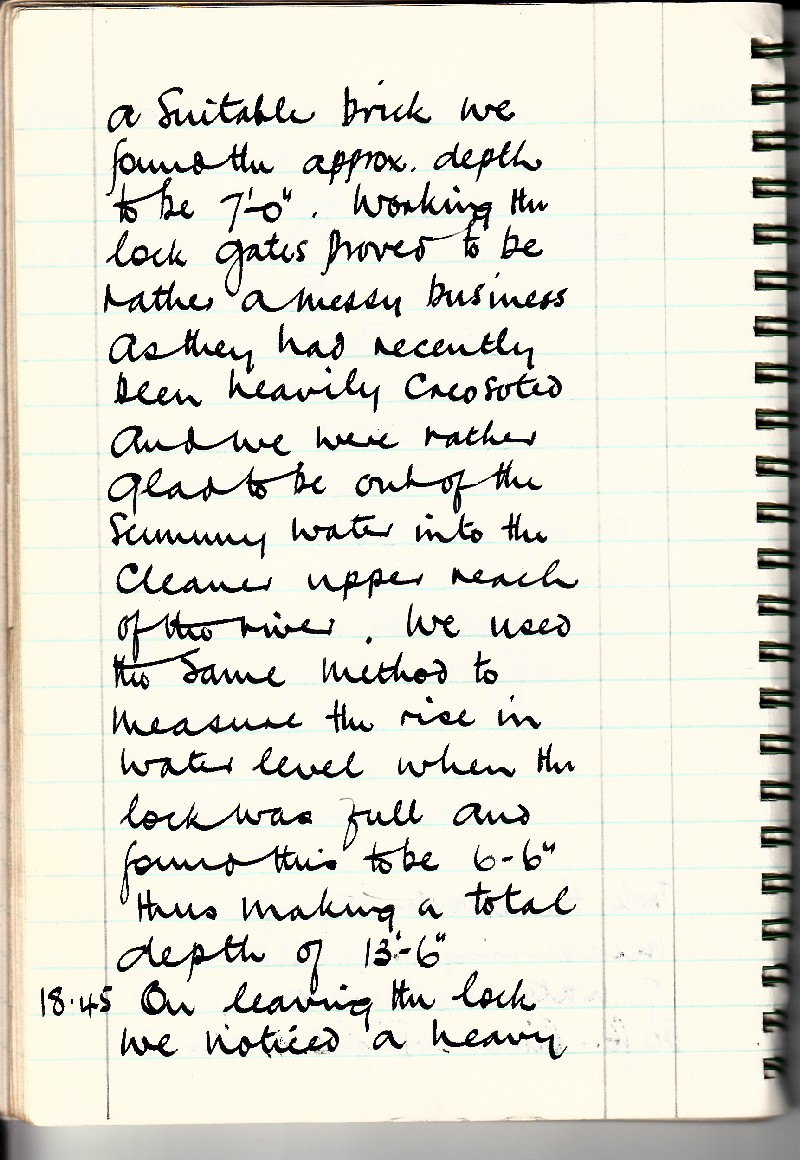 a suitable brick we
found the approx. depth
to be 7'-0". Working the
lock gates proved to be
rather a messy business
as they had recently
been heavily creosoted
and we were rather
glad to be out of the
scummy water into the
cleaner upper reach
of the river. We used
the same method to
measure the rise in
water level when the
lock was full and
found this to be 6-6"
thus making a total
depth of 13'-6"
18.45 On leaving the lock
we noticed a heavy